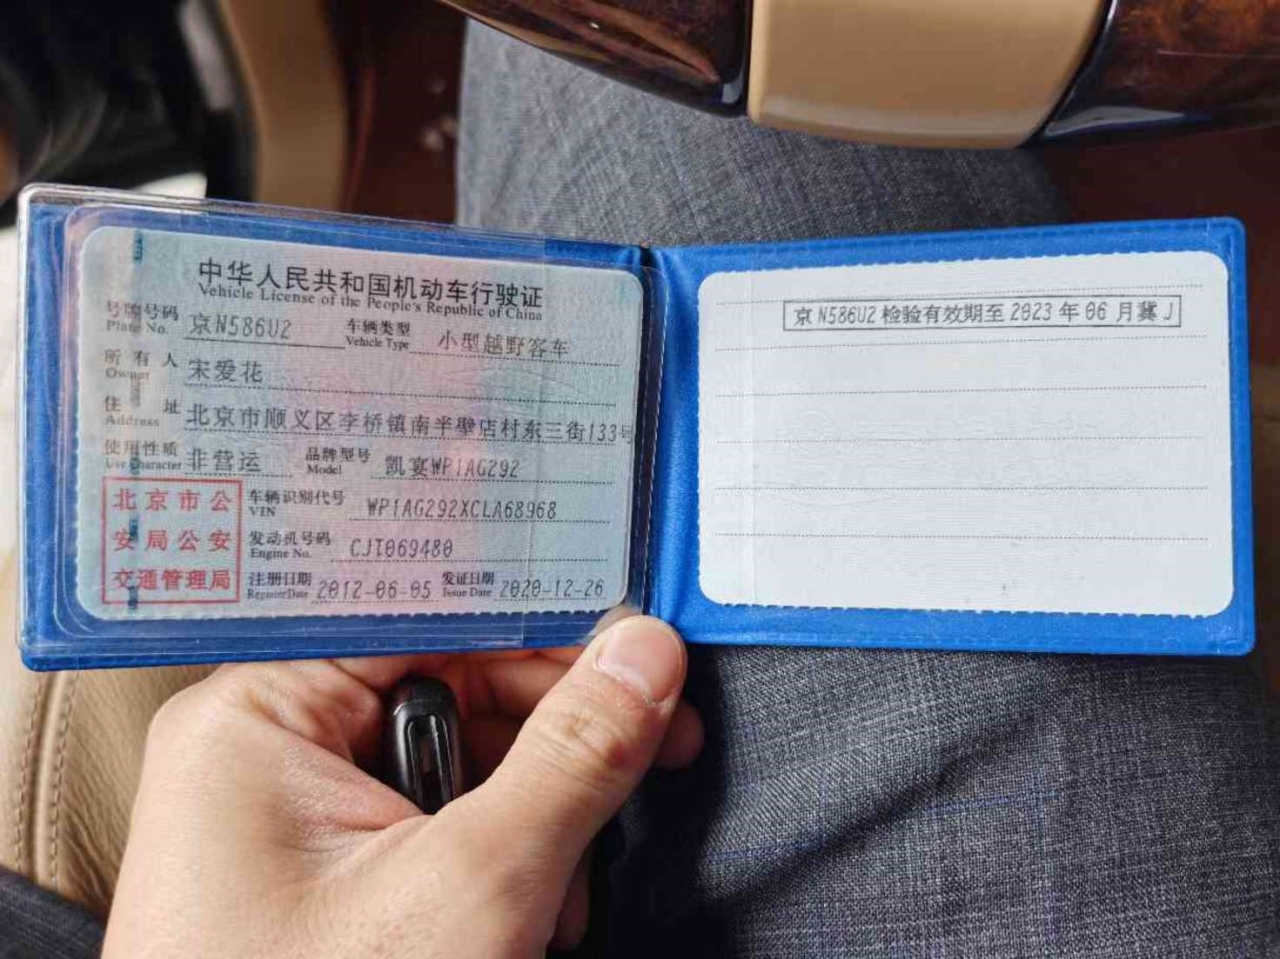 中华人民共和国机动车行驶证
Vehicle License of the People's Republic of China
号牌号码 京N586U2 车辆类型 小型越野客车
Plate No. Vehicle Type
所有人 宋爱花
Owner
住址 北京市顺义区李桥镇南半壁店村东三街133号
Address
使用性质 非营运 品牌型号 凯宴WP1AG292
Use Character Model
北京市公
安局公安
交通管理局
车辆识别代号 WP1AG292XCLA68968
VIN
发动机号码 CJT069480
Engine No.
注册日期 2012-06-05 发证日期 2020-12-26
Register Date Issue Date
京N586U2检验有效期至2023年06月冀J